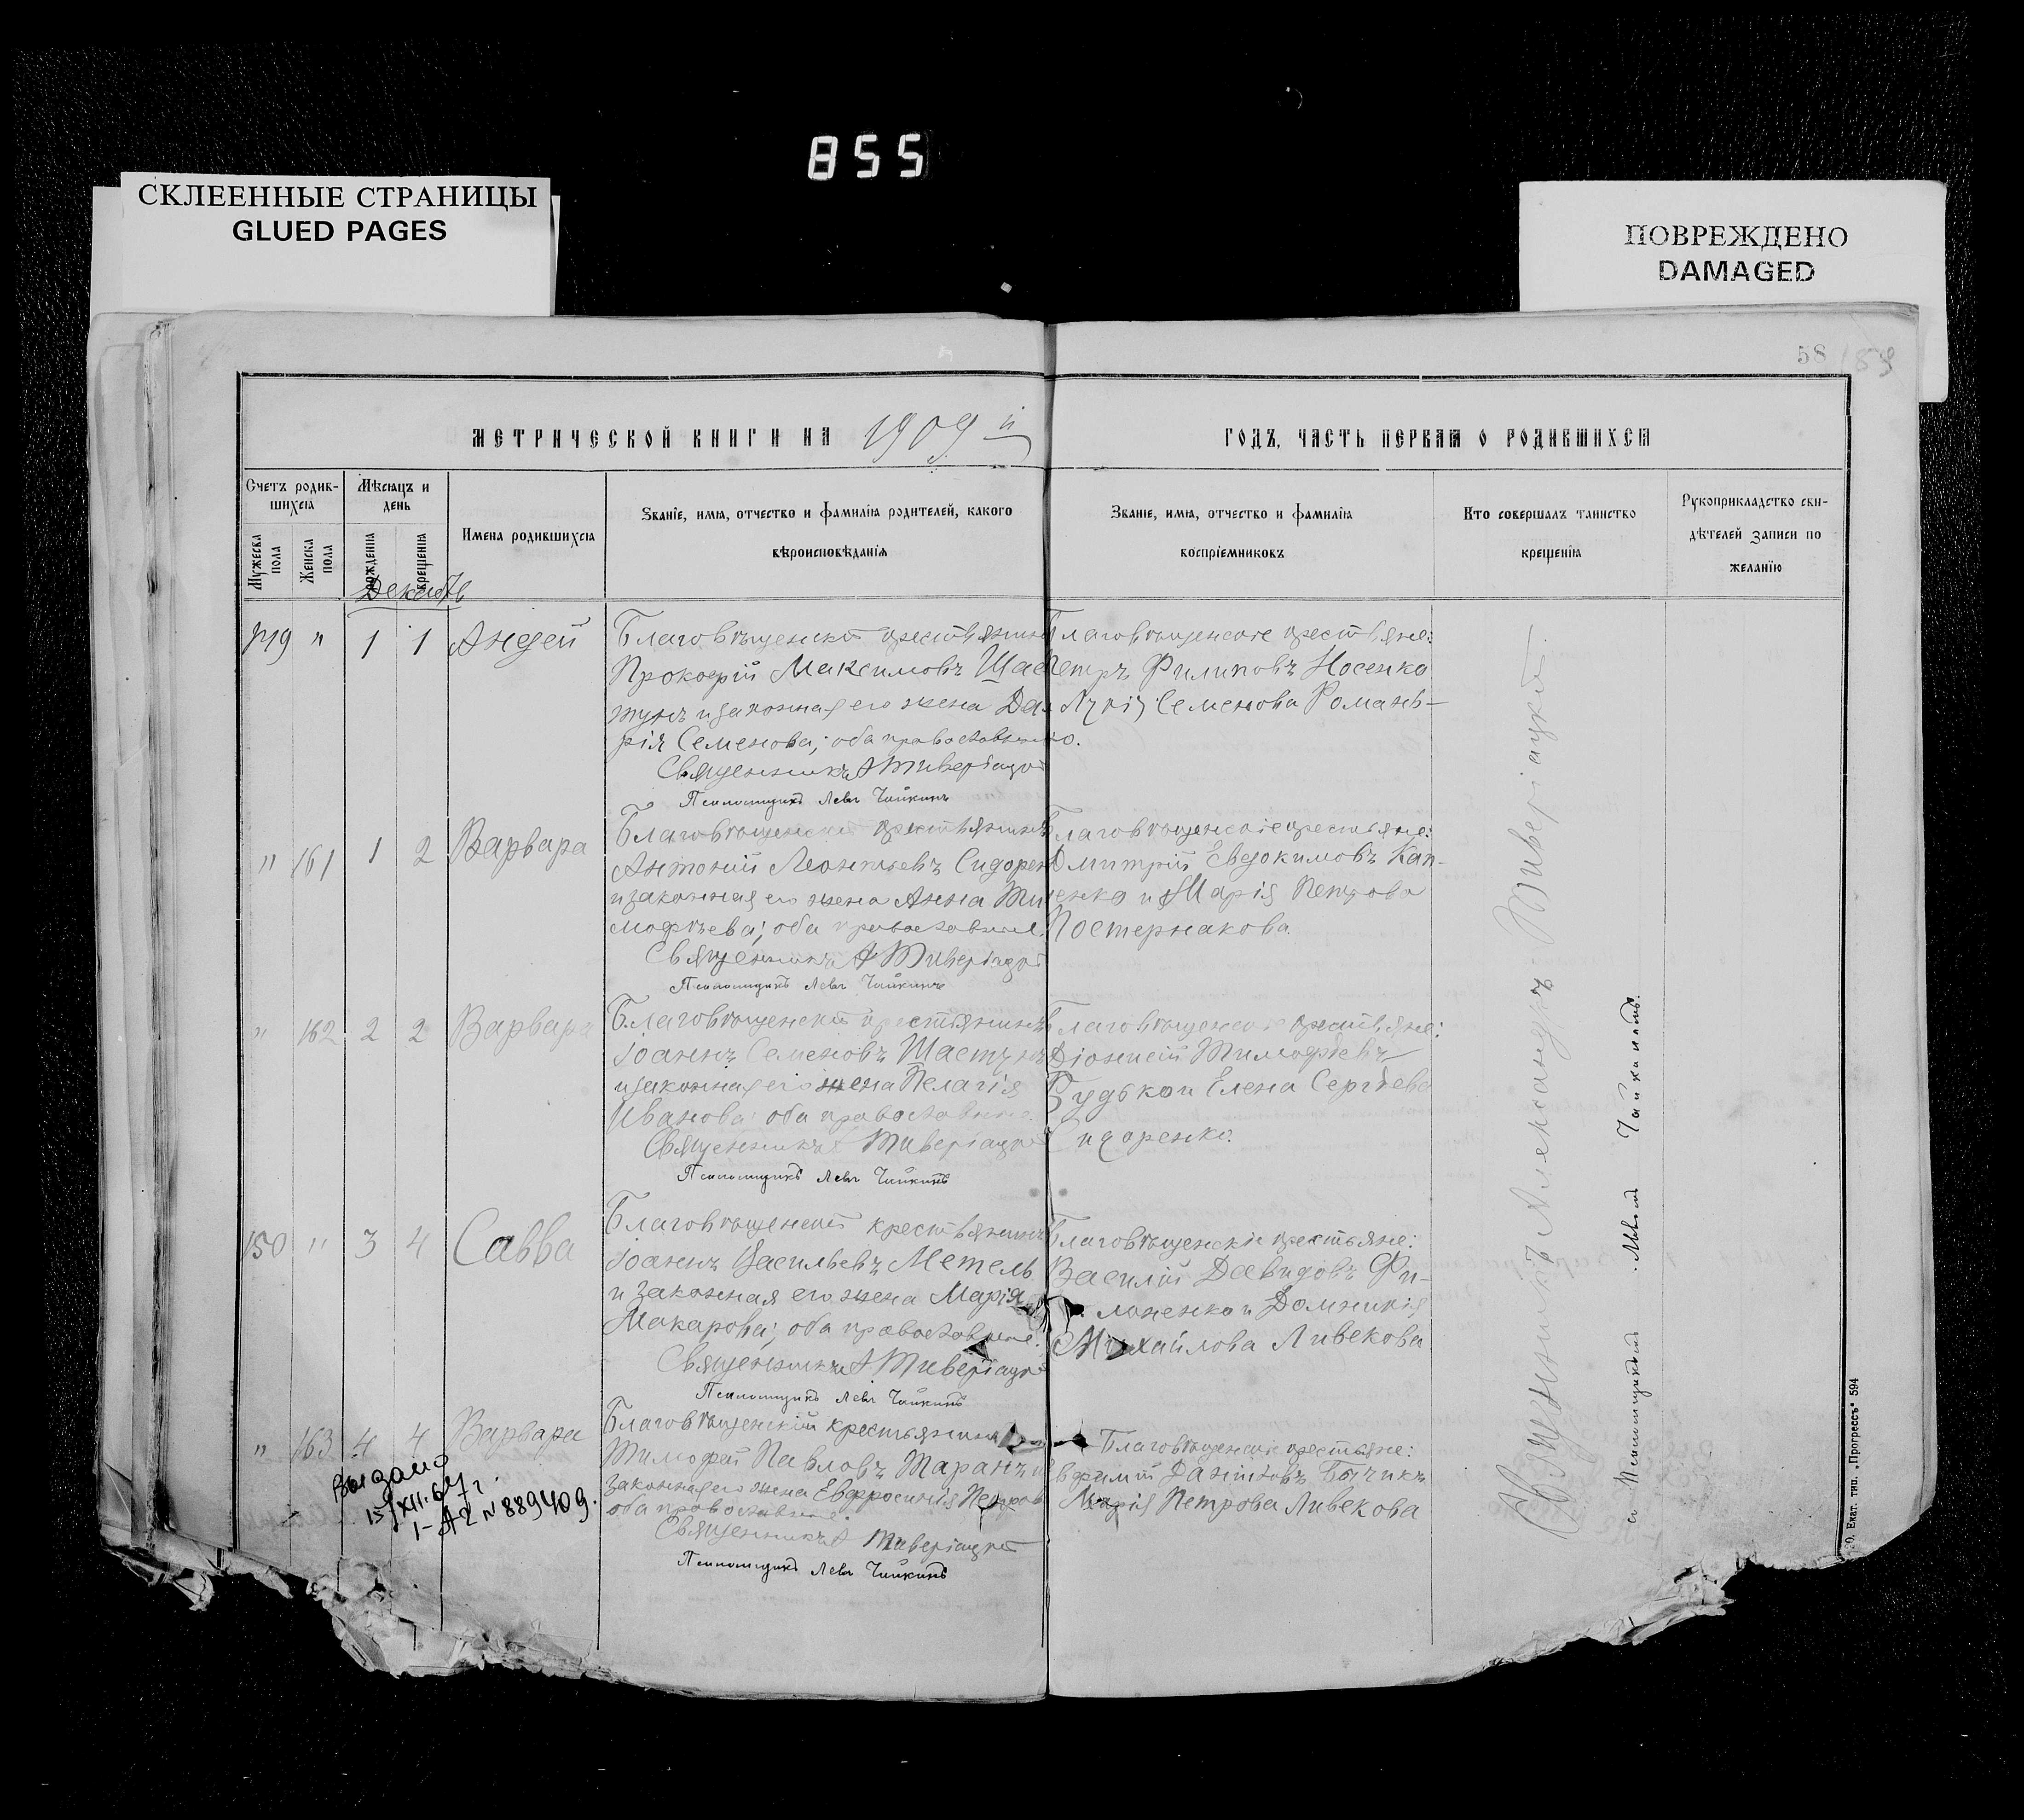 855
СКЛЕЕННЫЕ СТРАНИЦЫ
GLUED PAGES
ПОВРЕЖДЕНО
DAMAGED
58
МЕТРИЧЕСКОЙ КНИГИ НА 1909 й
ГОДЪ, ЧАСТЬ ПЕРВАЯ О РОДИВШИХСЯ
Счетъ родив-
шихся
Мѣсяцъ и
день
Мужеска
пола
Женска
пола
рожденія
крещенія
Имена родившихся
Званіе, имя, отчество и фамилія родителей, какого
вѣроисповѣданія
Званіе, имя, отчество и фамилія
воспріемниковъ
Кто совершалъ таинство
крещенія
Рукоприкладство сви-
дѣтелей записи по
желанію
Декабрь
149 " 1 1 Андрей
Благовѣщенскій крестьянинъ
Прокофій Максимовъ Шас
тунъ и законная его жена Да
рія Семенова; оба православные.
Священникъ А Тиверіацкій
Псаломщикъ Левъ Чайкинъ
Благовѣщенскіе крестьяне:
Петръ Филиповъ Носенко
Семенова Романь-
ко.
" 161 1 2 Варвара
Благовѣщенскій крестьянинъ
Антоній Леонтьевъ Сидорен
и законная его жена Анна Ти
мофѣева; оба православные.
Священникъ А Тиверіацкій
Псаломщикъ Левъ Чайкинъ
Благовѣщенскіе крестьяне:
Дмитрій Евдокимовъ Кап-
ченко и Марія Петрова
Постернакова.
" 162 2 2 Варвара
Благовѣщенскій крестьянинъ
Іоаннъ Семеновъ Шастунъ
и законная его жена Пелагія
Иванова; оба православные.
Священникъ А Тиверіацкій
Псаломщикъ Левъ Чайкинъ
Благовѣщенскіе крестьяне:
Діонисій Тимофѣевъ
Будько и Елена Сергѣева
Сидоренко.
150 " 3 4 Савва
Благовѣщенскій крестьянинъ
Іоаннъ Васильевъ Метель
и законная его жена Марія
Макарова; оба православные.
Священникъ А Тиверіацкій
Псаломщикъ Левъ Чайкинъ
Благовѣщенскіе крестьяне:
Василій Давидовъ Фи-
лоненко и Домникія
Михайлова Ливекова
" 163 4 4 Варвара
Благовѣщенскій крестьянинъ
Тимофей Павловъ Таранъ и
законная его жена Евфросинія Петров
оба православные.
Священникъ А Тиверіацкій
Псаломщикъ Левъ Чайкинъ
Благовѣщенскіе крестьяне:
Евфимій Даниловъ Бычикъ
Марія Петрова Ливекова
Выдано
15/XII.67 г.
I-АЯ № 889409.
Священникъ Александръ Тиверіацкій.
и Псаломщикъ Левъ Чайкинъ.
Екат. тип. „Прогрессъ" 594